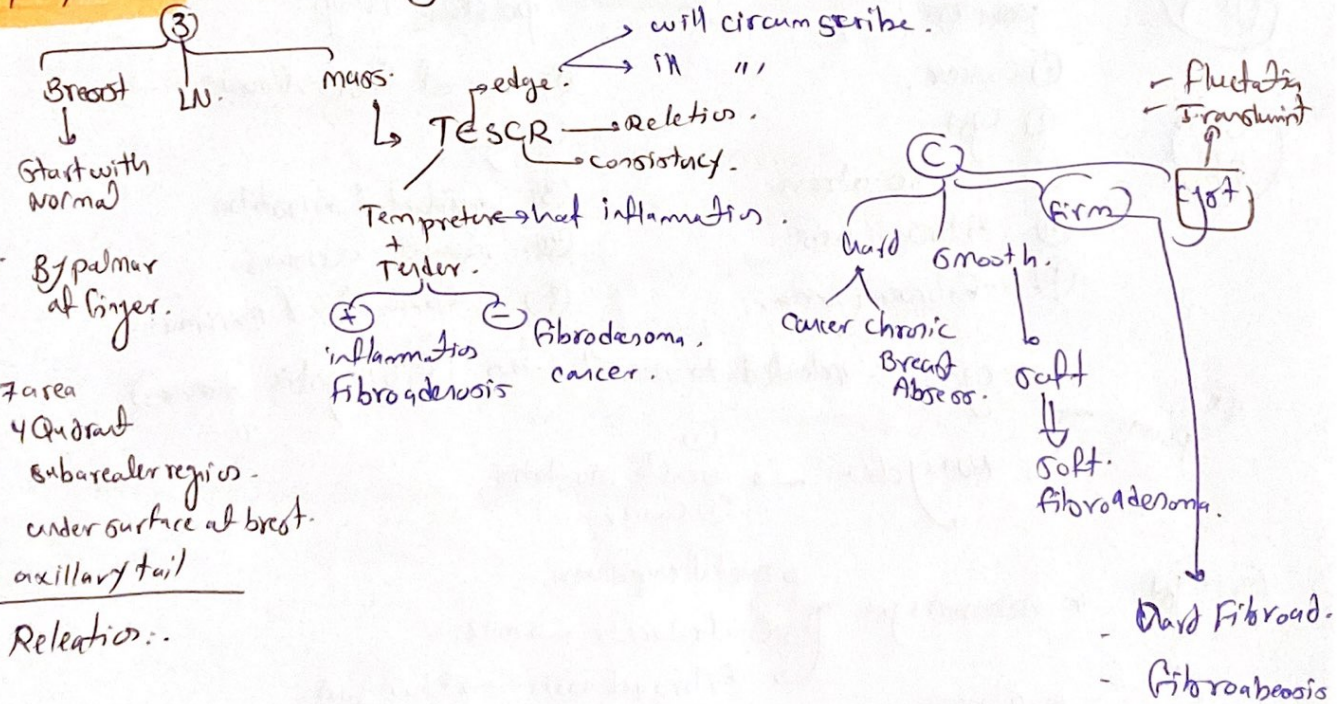 3
Breast
LN.
mass.
Start with
normal
By palmar
of finger.
7 area
4 Qudrant
subarealer region.
under surface of brest.
axillary tail
Releation:.
edge.
will circumscribe.
ill " "
TESCR
Reletion.
consistacy.
Tempreture → hot inflammation.
+
Tender.
+
inflammation
Fibroadenosis
-
fibrodenoma,
cancer.
C
Hard
cancer
chronic
Breast
Abscess.
Smooth.
Soft
Soft.
fibroadenoma.
firm
- Hard Fibroad.
- fibroabenosis
cyst
- fluctation